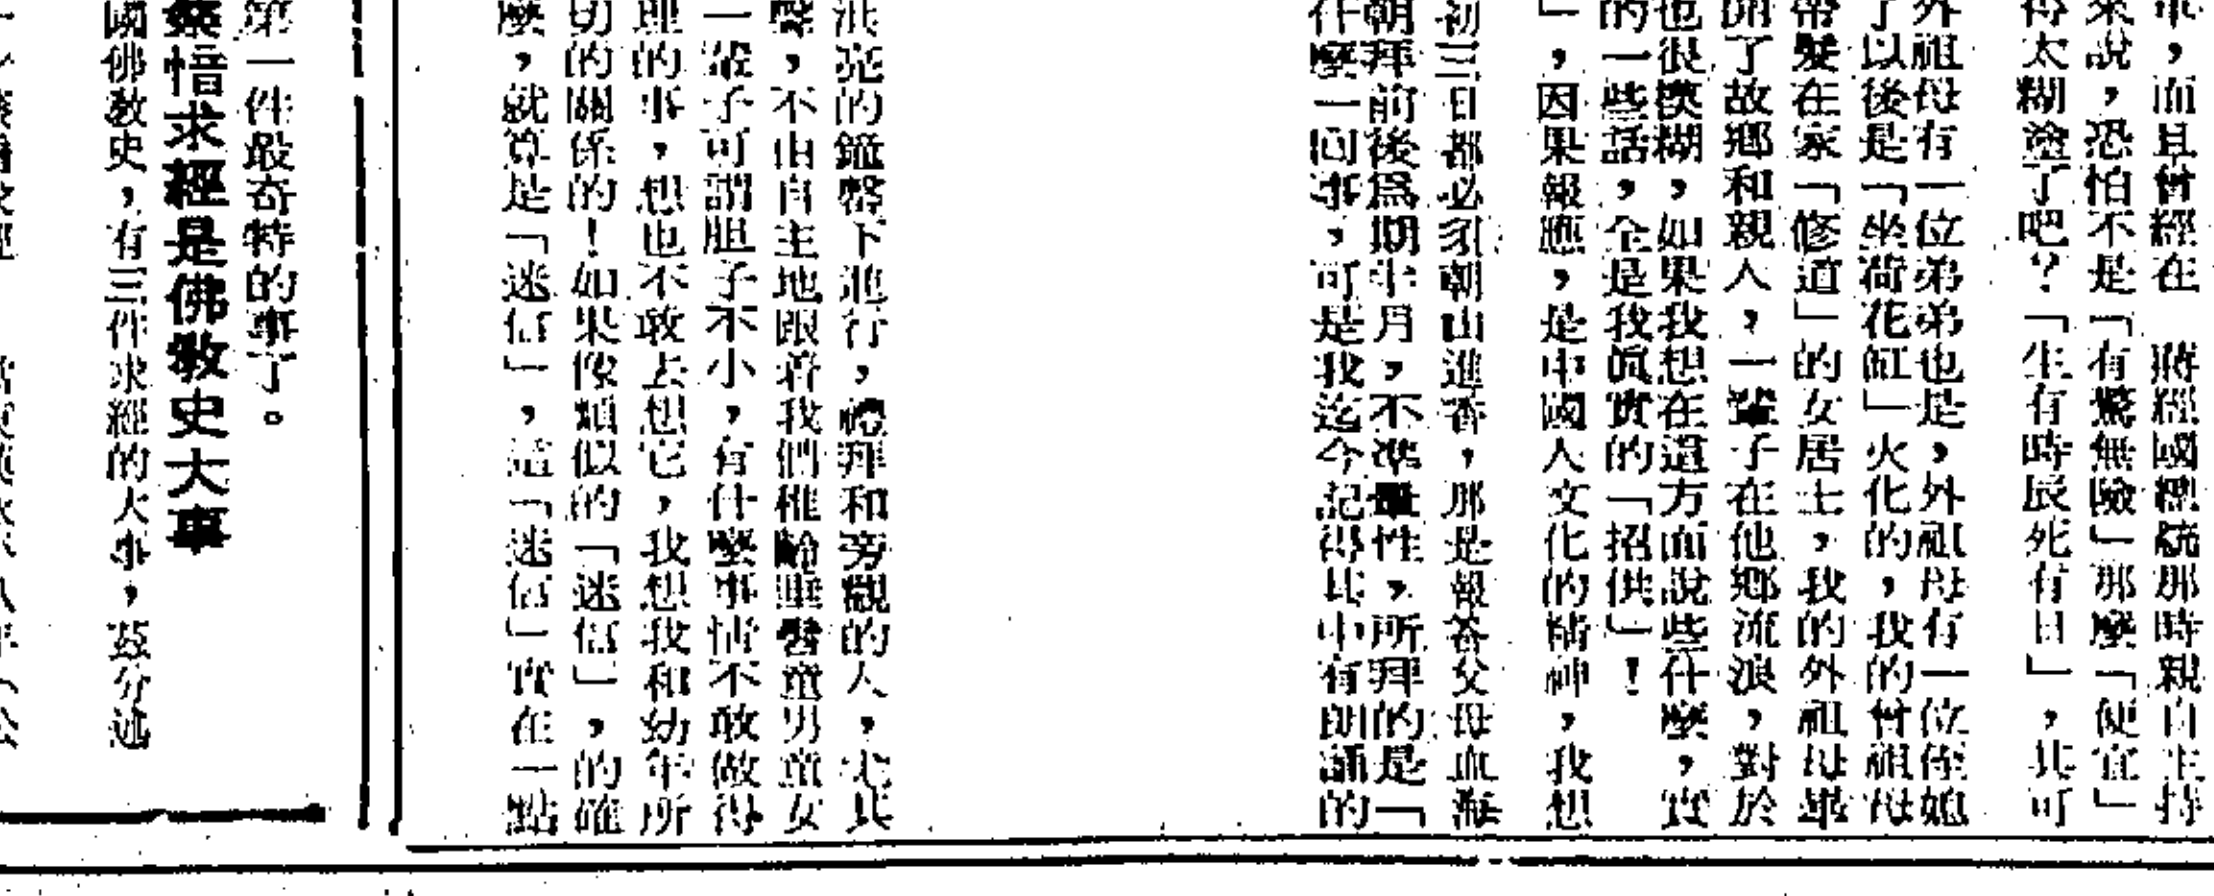 車，而且曾經在　蔣經國總統那時親自主持
來說，恐怕不是「有驚無險」那麼「便宜」
得太糊塗了吧？「生有時辰死有日」，其可
外祖母有一位弟弟也是，外祖母有一位侄媳
了以後是「坐荷花缸」火化的，我的曾祖母
帶髮在家「修道」的女居士，我的外祖母舉
開了故鄉和親人，一輩子在他鄉流浪，對於
也很模糊，如果我想在這方面說些什麼，實
的一些話，全是我眞實的「招供」！
」，因果報應，是中國人文化的精神，我想
初三日都必須朝山進香，那是報答父母血海
朝拜前後爲期半月，不準葷性，所拜的是「
什麼一回事，可是我迄今記得其中有朗誦的
洪亮的鐘磬下進行，禮拜和旁觀的人，尤其
聲，不由自主地跟着我們稚齡垂髫童男童女
一輩子可謂胆子不小，有什麼事情不敢做得
理的事，想也不敢去想它，我想我和幼年所
切的關係的！如果像類似的「迷信」，的確
麼，就算是「迷信」，這「迷信」實在一點
第一件最奇特的事了。
蔡愔求經是佛敎史大事
國佛敎史，有三件求經的大事，茲分述